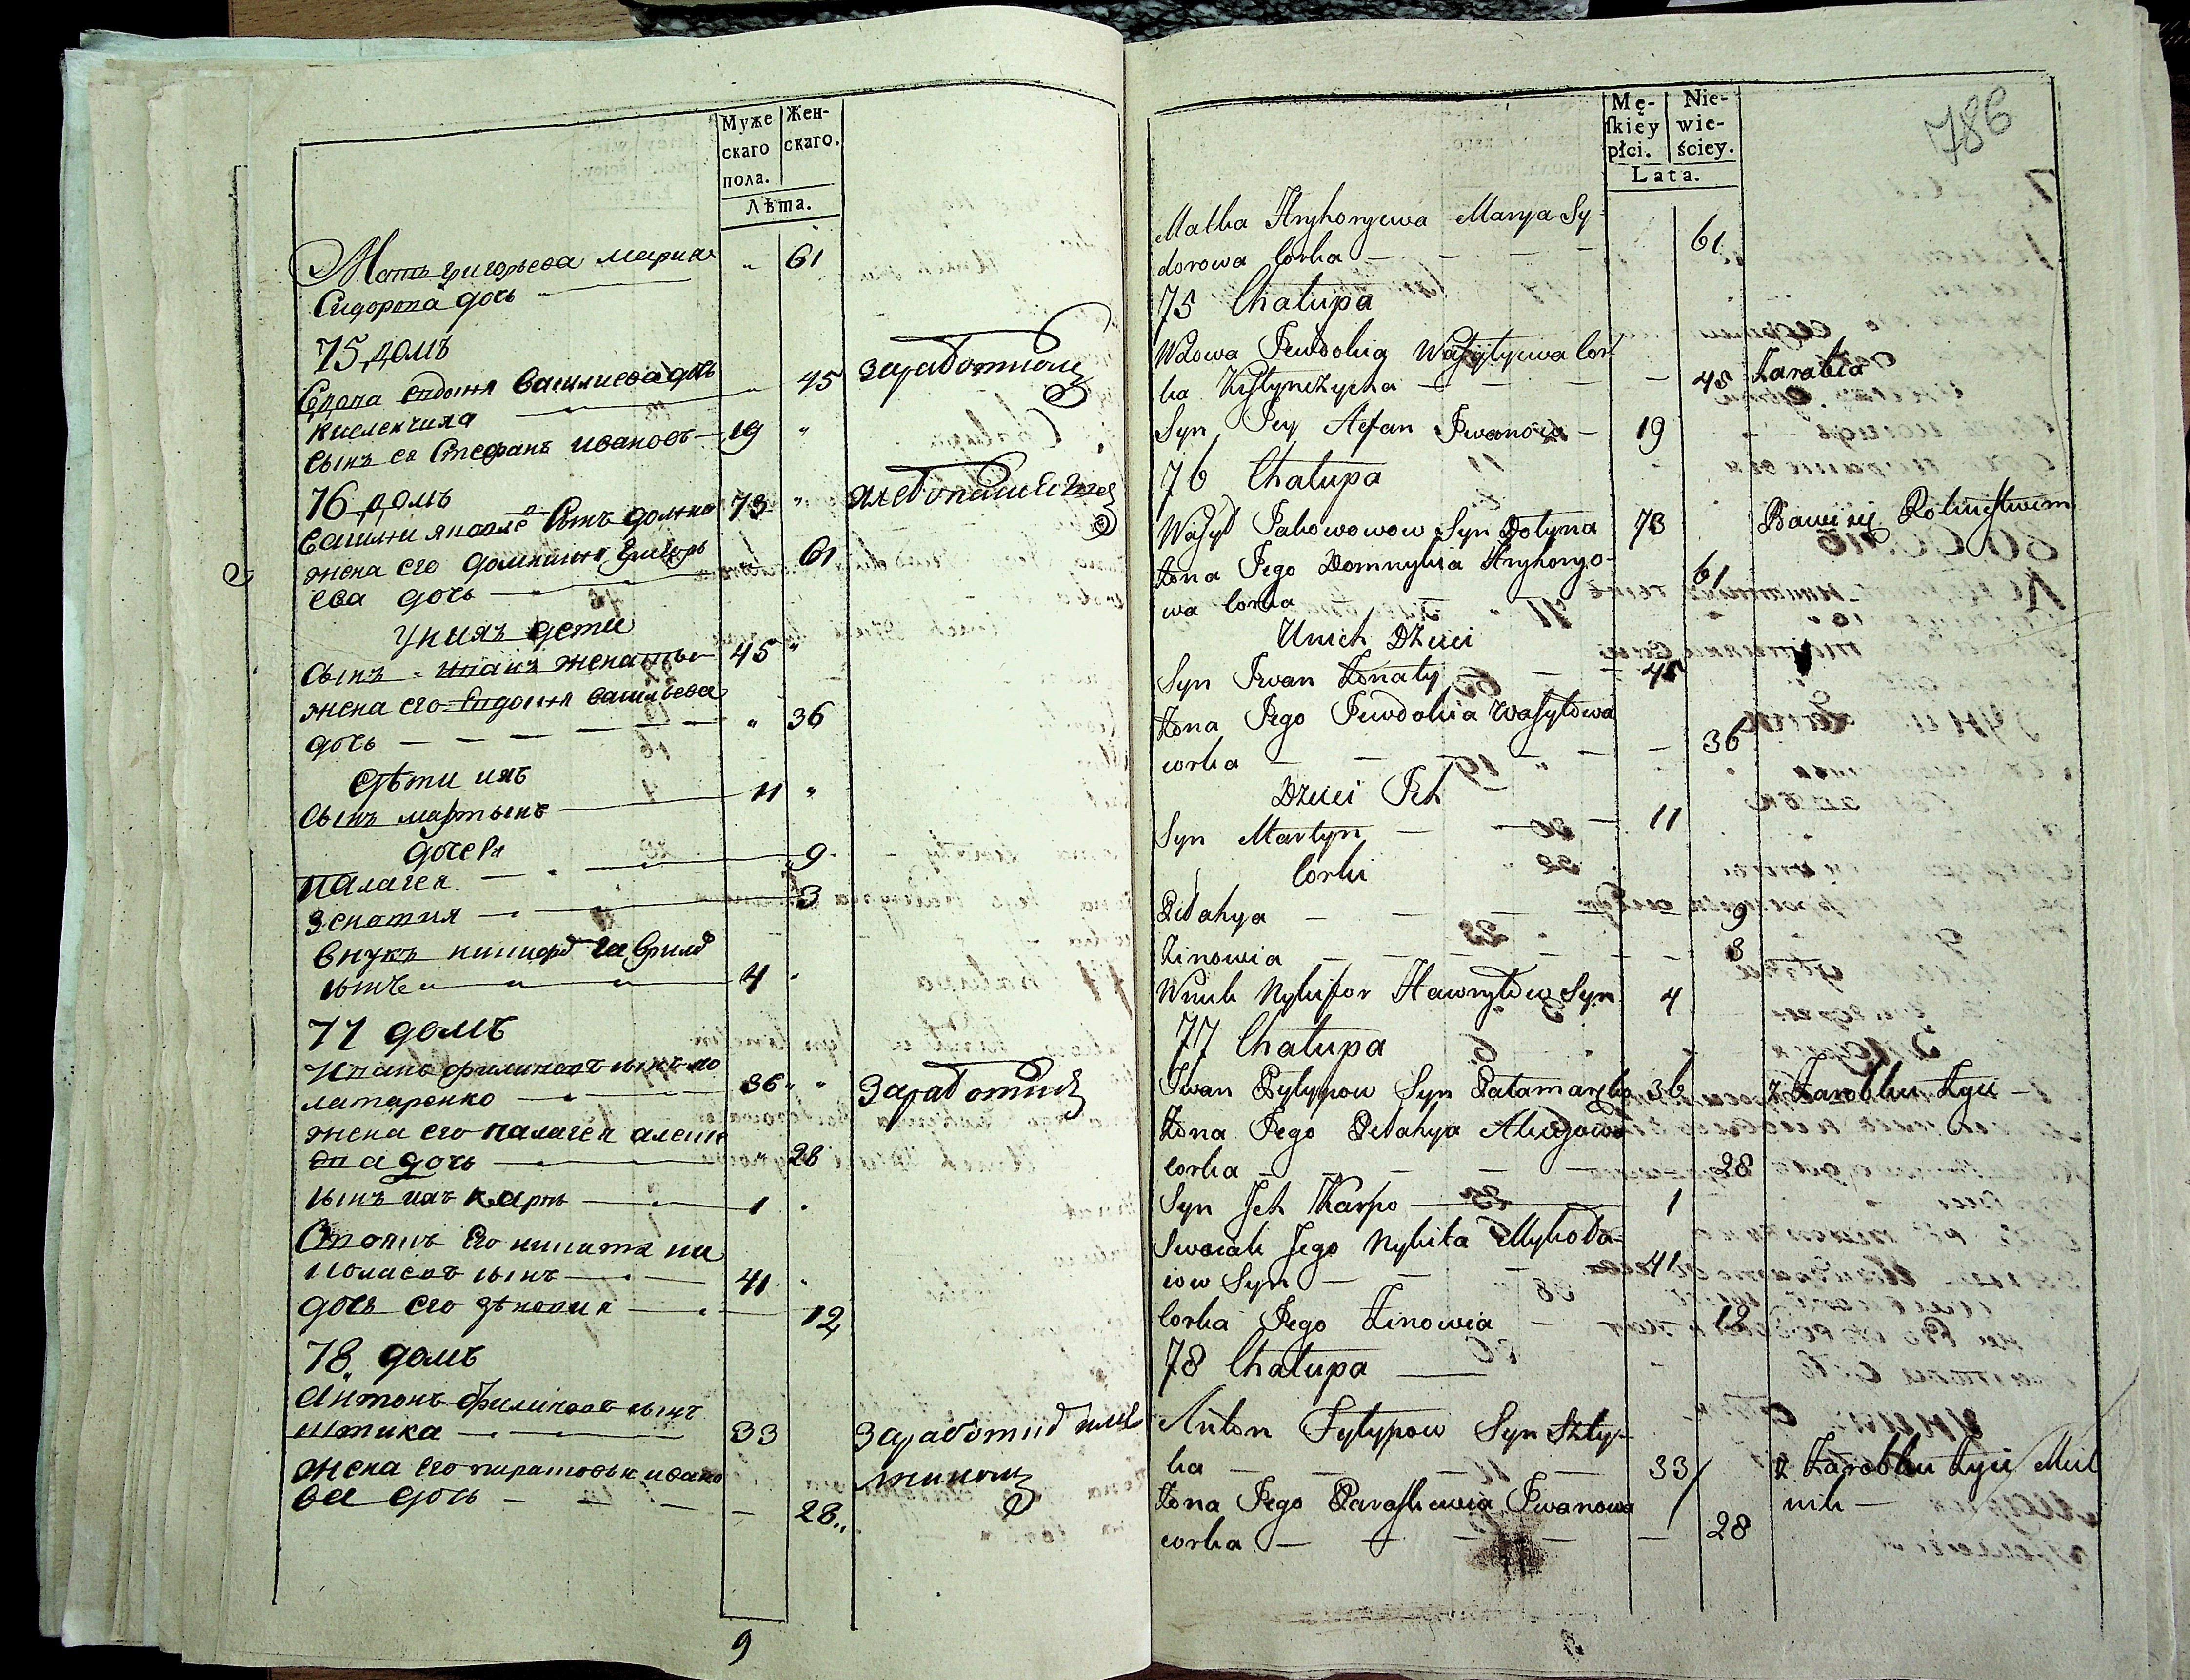 Муже
скаго
пола.
Жен-
скаго.
Лѣта.
Мать григорьева мариа
Сидорова дочь
61
75 домъ
Вдова евдокия Василиева дочь
45
заработком
киселичиха
сынъ ея Стефанъ ивановъ
19
76 домъ
Василии яковле Сынъ долина
73
жена его домникия Григорь
ева дочь
61
У них дети
Сынъ иванъ женатый
45
жена его Евдокия васильева
дочь
36
Дѣти ихъ
Сынъ мартынъ
11
дочери
Палагея
9
Зеновия
3
внукъ никифор гаврило
сынъ
4
77 домъ
Иванъ филиповъ сынъ по
ламаренко
36
жена его палагея алексе
ева дочь
28
сынъ ихъ карпъ
1
его никита ни
колаевъ сынъ
41
дочь его зѣновия
12
78 домъ
Антонъ филиповъ сынъ
штика
33
жена его парасковья ивано
ва дочь
28
9
Mę-
ſkiéy
płci.
Nie-
wie-
ściey.
Lata.
786
Matka Hryhoryewa Marya Sy-
dorowa Corka
61
75 Chałupa
Wdowa Jewdokia Wasylyewa Cor
ka
45
Zarabia
Syn Jey Stefan Iwanow
19
76 Chałupa
Wasyl Jakowowow Syn Dolyna
73
Bawi się Rolnictwem
Żona Jego Domnykia Hryhoryo-
wa Corka
61
U nich Dzieci
Syn Iwan Żonaty
45
Żona Jego Jewdokia Wasylowa
corka
36
Dzieci Ich
Syn Martyn
11
Corki
Pelahya
9
Zinowia
3
Wnuk Nykifor Hawryłow Syn
4
77 Chałupa
Iwan Pylypow Syn Palamarenko
36
z Zarobku Żyie
Żona Jego Pelahya Alexejowa
Corka
28
Syn Jch Karpo
1
Swoiak Jego Nykita Mykoła-
iow Syn
41
Corka Jego Zinowia
12
78 Chałupa
Anton Pylypow Syn Szty-
ka
33
z Zarobku Żyie Miel
nik
Żona Jego Paraskewia Iwanowa
corka
28